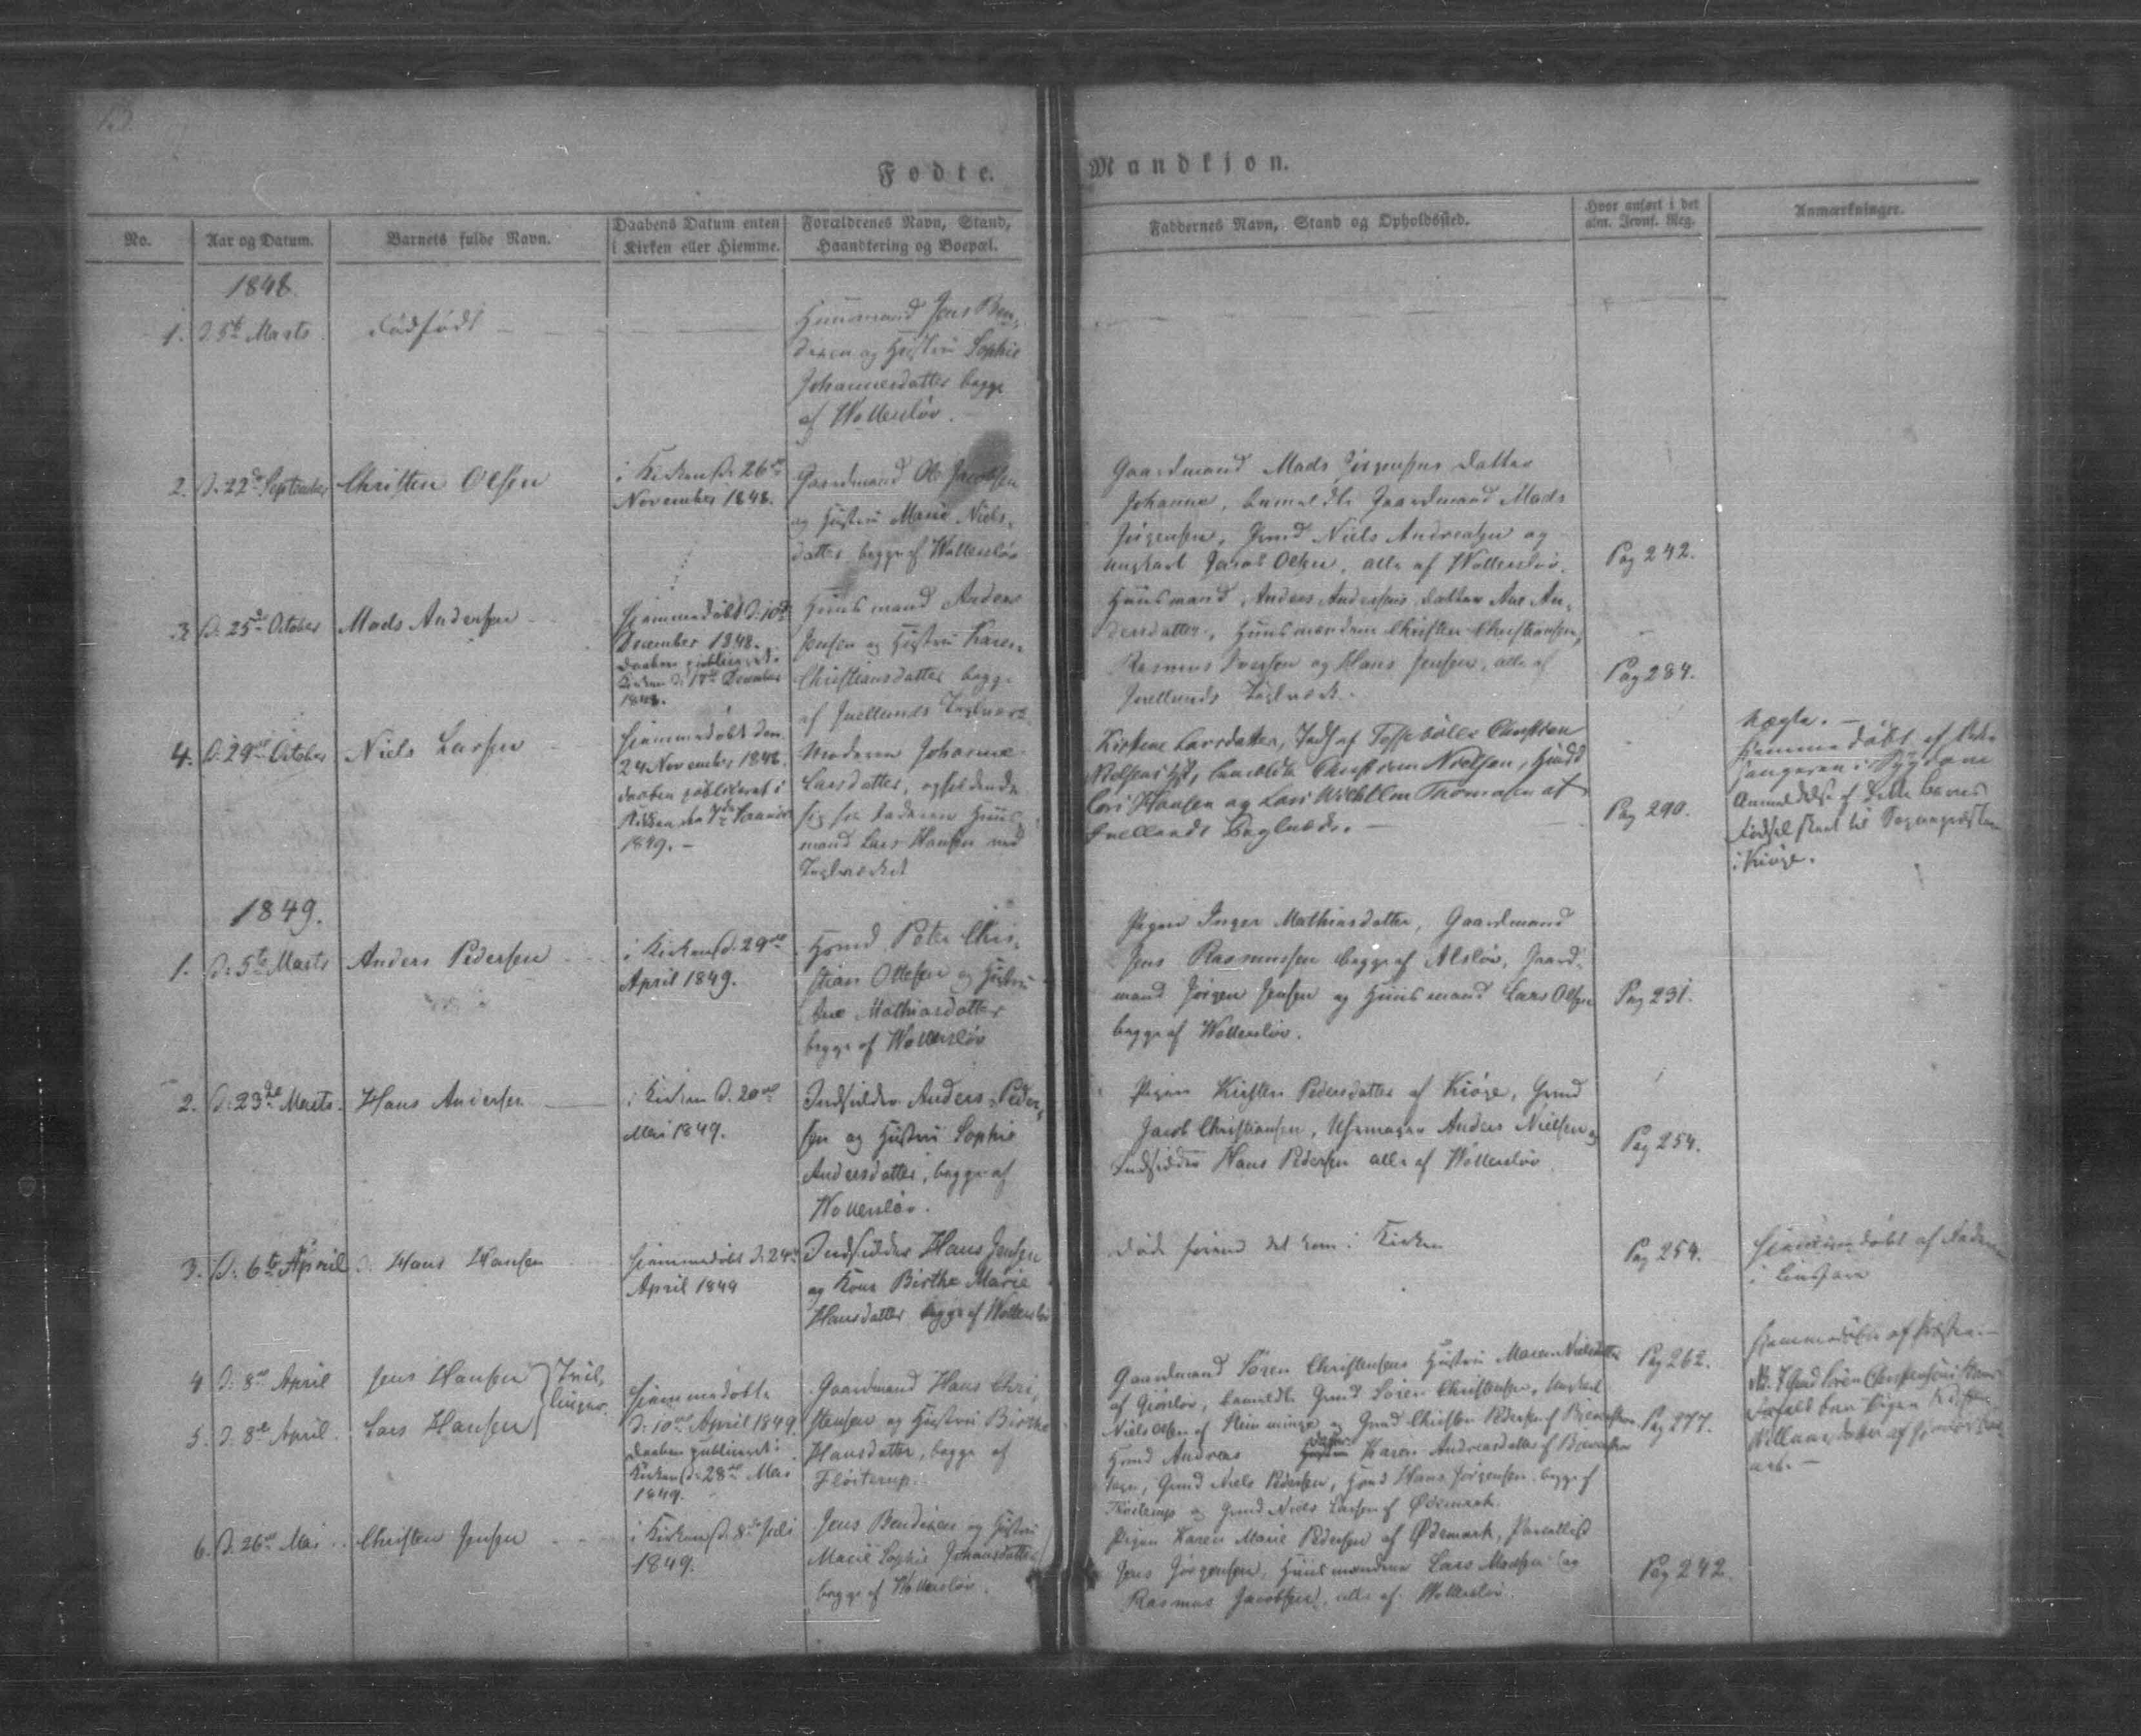 Fødte.
Mandkjøn.
No.
Aar og Datum.
Barnets fulde Navn.
Daabens Datum enten
i Kirken eller Hjemme.
Forældrenes Navn, Stand,
Haandtering og Boepæl.
Faddernes Navn, Stand og Opholdssted.
Hvor anført i det
alm. Jevnf. Reg.
Anmærkninger.
1848.
1.
d. 5te Marts
dødfødt
Huusmand Jens Ben-
dixen og Hustru Sophie
Johannesdatter begge
af Wollerslöv.
2.
d. 22de September
Christen Olsen
i Kirken d. 26de
November 1848.
Gaardmand Ole Jacobsen
og Hustru Marie Niels-
datter begge af Wollerslöv
Gaardmand Mads Jörgensens Datter
Johanne, Gaardmand Mads
Jörgensen, Gmd Niels Andreasen og
Ungkarl Jacob Olsen, alle af Wollerslöv.
Pag 242.
3.
d. 25de October
Mads Andersen
Hjemmedöbt d. 10de
December 1848.
Daaben publiceret i
Kirken d. 17de December
1848.
Huusmand Anders
Jensen og Hustru Karen
Christiansdatter begge
af Juellunds Teglværk
Huusmand Anders Andersens Datter Ane An-
dersdatter, Huusmændene Christen Christiansen,
Rasmus Iversen og Hans Jensen, alle af
Juellunds Teglværk.
Pag 284.
4.
d. 29de October
Niels Larsen
Hjemmedöbt den
24 November 1848.
Daaben publiceret i
Kirken den 7de Januar
1849.
Moderen Johanne
Larsdatter, opholdende
sig hos Faderen Huus-
mand Lars Hansen ved
Teglværket
Kirstine Larsdatter, Christian
Christian Nielsen, Huusmd
Lars Hansen og Lars Wilhelm Thomasen af
Juellunds Teglværk.
Pag 290.
uægte.
Hjemmedöbt af
i Sygdom
Anmeldelse af dette Barns
Födsel sendt til Sognepræsten
i Kiöge.
1849.
1.
d. 5te Marts
Anders Pedersen
i Kirken d. 29de
April 1849.
Hsmd Peter Chri-
stian Ottesen og Hustru
Ane Mathiasdatter
begge af Wollerslöv
Pigen Inger Mathiasdatter, Gaardmand
Jens Rasmussen begge af Alslöv, Gaard-
mand Jörgen Jensen og Huusmand Lars Olsen
begge af Wollerslöv.
Pag 231.
2.
d. 23de Marts.
Hans Andersen
i Kirken d. 20de
Mai 1849.
Indsidder Anders Peder-
sen og Hustru Sophie
Andersdatter, begge af
Wollerslöv.
Pigen Kirsten Pedersdatter af Kiöge, Gmd
Jacob Christiansen, Anders Nielsen og
Indsidder Hans Pedersen alle af Wollerslöv
Pag 254.
3.
d. 6te April
Hans Hansen
Hjemmedöbt d. 24de
April 1849
Indsidder Hans Jensen
og Kone Birthe Marie
Hansdatter begge af Wollerslöv
Döde forend det kom i Kirken
Pag 254.
Hjemmedöbt af Faderen
i
4
d. 8de April
Jens Hansen
Tvil-
linger.
5.
d. 8de April.
Lars Hansen
Hjemmedöbte
d. 10de April 1849.
Daaben publiceret i
Kirken d. 28de Mai
1849.
Gaardmand Hans Chri-
stensen og Hustru Birthe
Hansdatter, begge af
Flöiterup.
Gaardmand Sören Christensens Hustru Maren Nielsdatter
af Giörslöv, Gmd Sören Christensen, Ungkarl
Niels Olsen af og Gmd Christen Pedersen af
Hsmd Andreas Datter Karen Andreasdatter af
Gmd Niels Pedersen, Hsmd Hans Jörgensen begge af
Flöiterup og Gmd Niels Larsen af Ödemark.
Pag 262.
Pag 277.
Hjemmedöbte af Præsten.
6.
d. 26de Mai
Christen Jensen
i Kirken d. 8de Juli
1849.
Jens Bendixen og Hustru
Marie Sophie Johansdatter
begge af Wollerslöv.
Pigen Karen Marie Pedersen af Ödemark, Parcellist
Jens Jörgensen, Huusmændene Lars Madsen og
Rasmus Jacobsen, alle af Wollerslöv.
Pag 242.